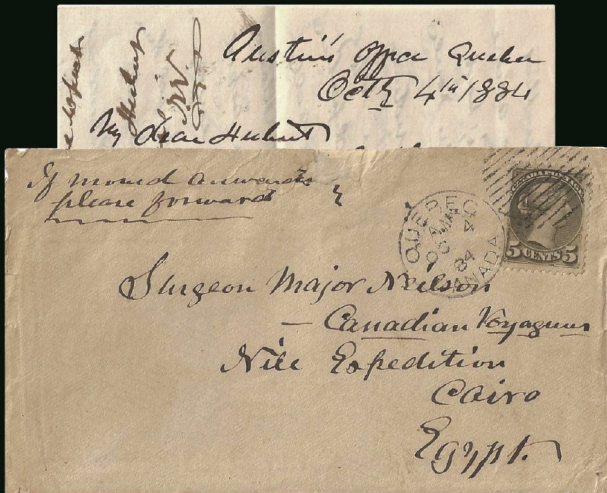 Austin's Office Quebec
Octr 4th 1884
My dear Hubert
If moved onwards
please forward
QUEBEC
AM
OC 4
84
CANADA
CANADA POSTAGE
5 CENTS 5
Surgeon Major Neilson
— Canadian Voyageurs
Nile Expedition
Cairo
Egypt.